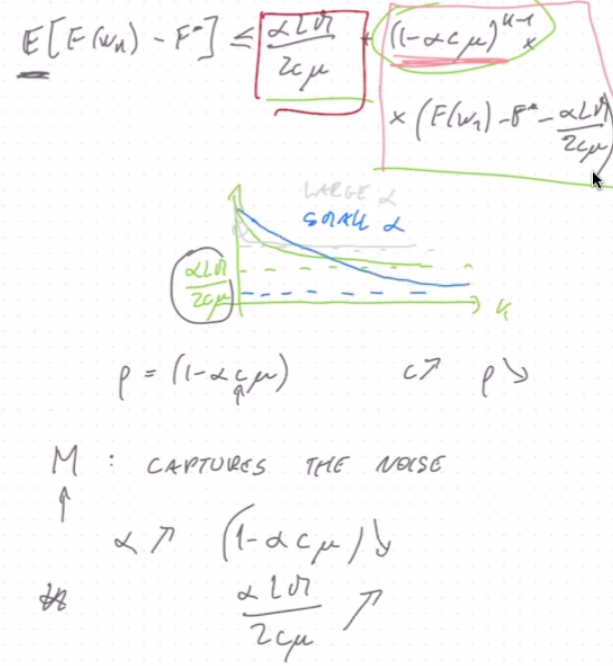 E[F(w_k) - F*] ≤ αLM/2cμ + (1-αcμ)^{k-1} ×
× (F(w_1) - F* - αLM/2cμ)
LARGE α
SMALL α
αLM/2cμ
k
ρ = (1-αcμ) c↗ ρ↘
↑
M : CAPTURES THE NOISE
↑
α↗ (1-αcμ)↘
αLM/2cμ ↗